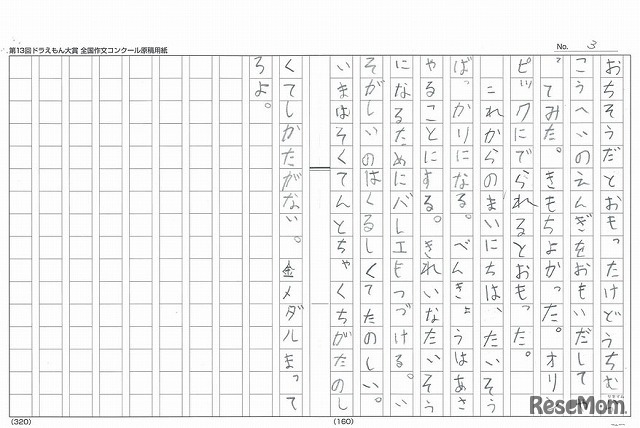 第13回ドラえもん大賞 全国作文コンクール原稿用紙
No. 3
おちそうだとおもったけどうちむ
こうへいのえんぎをおもいだして
ってみた。きもちよかった。オリ
ピックにでられるとおもった。
これからのまいにちは、たいそう
ばっかりになる。べんきょうはあさ
やることにする。きれいなたいそう
になるためにバレエもつづける。い
そがしいのはくるしくてたのしい。
いまはそくてんとちゃくちがたのし
くてしかたがない。金メダルまって
ろよ。
(320)
(160)
リセマム
ReseMom.